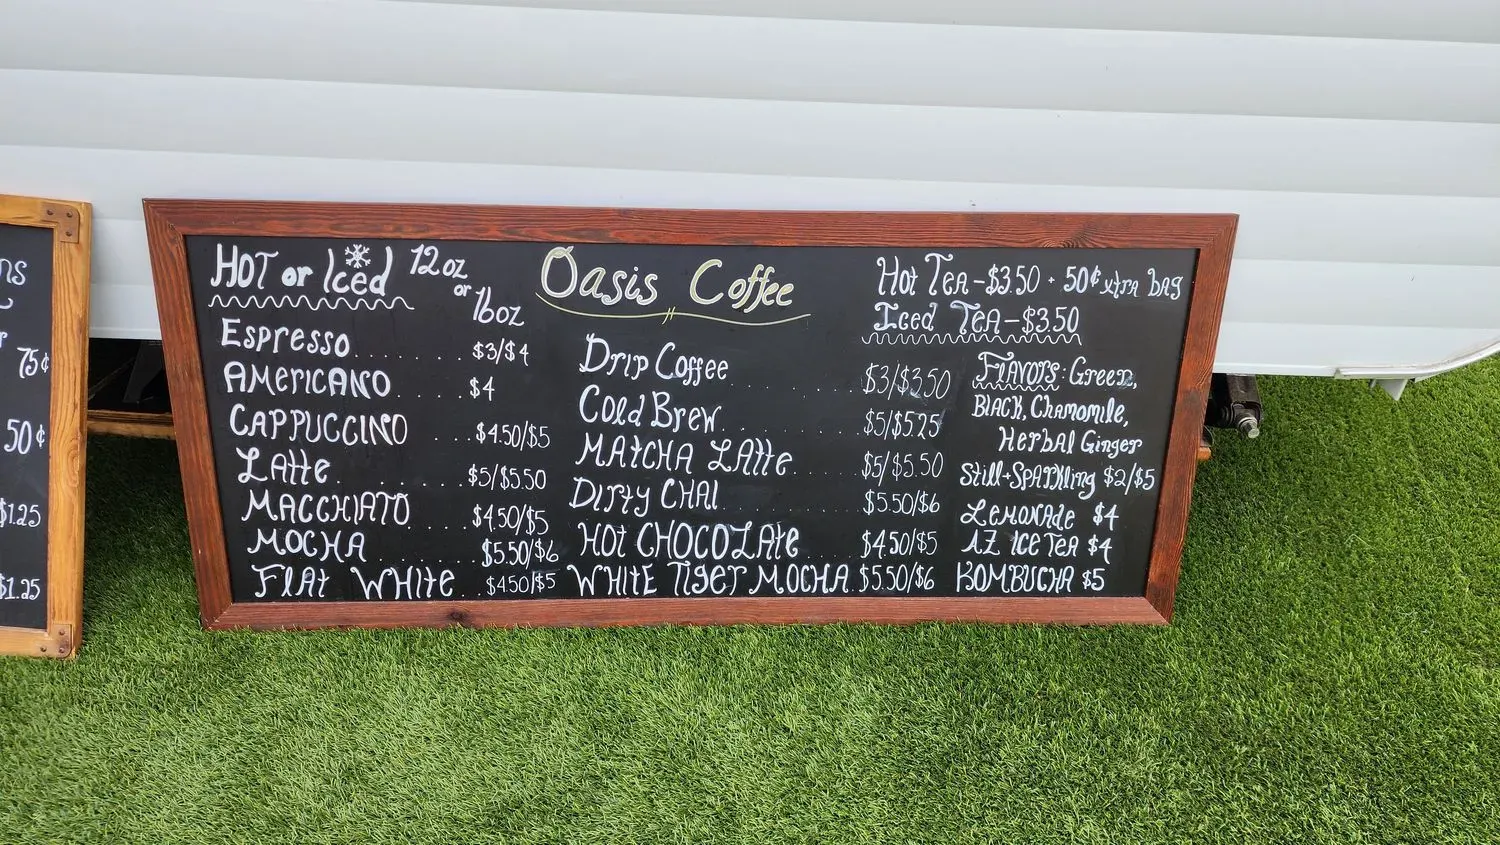 ns
75¢
50¢
$1.25
$1.25
Hot or Iced 12oz or 16oz
Espresso ....... $3/$4
Americano $4
Cappuccino ... $4.50/$5
Latte ....... $5/$5.50
Macchiato .... $4.50/$5
Mocha ........ $5.50/$6
Flat White .. $4.50/$5
Oasis Coffee
Drip Coffee ....... $3/$3.50
Cold Brew ....... $5/$5.25
Matcha Latte ..... $5/$5.50
Dirty Chai ........ $5.50/$6
Hot Chocolate .... $4.50/$5
White Tiger Mocha . $5.50/$6
Hot Tea - $3.50 · 50¢ xtra bag
Iced Tea - $3.50
Flavors: Green,
Black, Chamomile,
Herbal Ginger
Still + Sparkling $2/$5
Lemonade $4
AZ Ice Tea $4
Kombucha $5